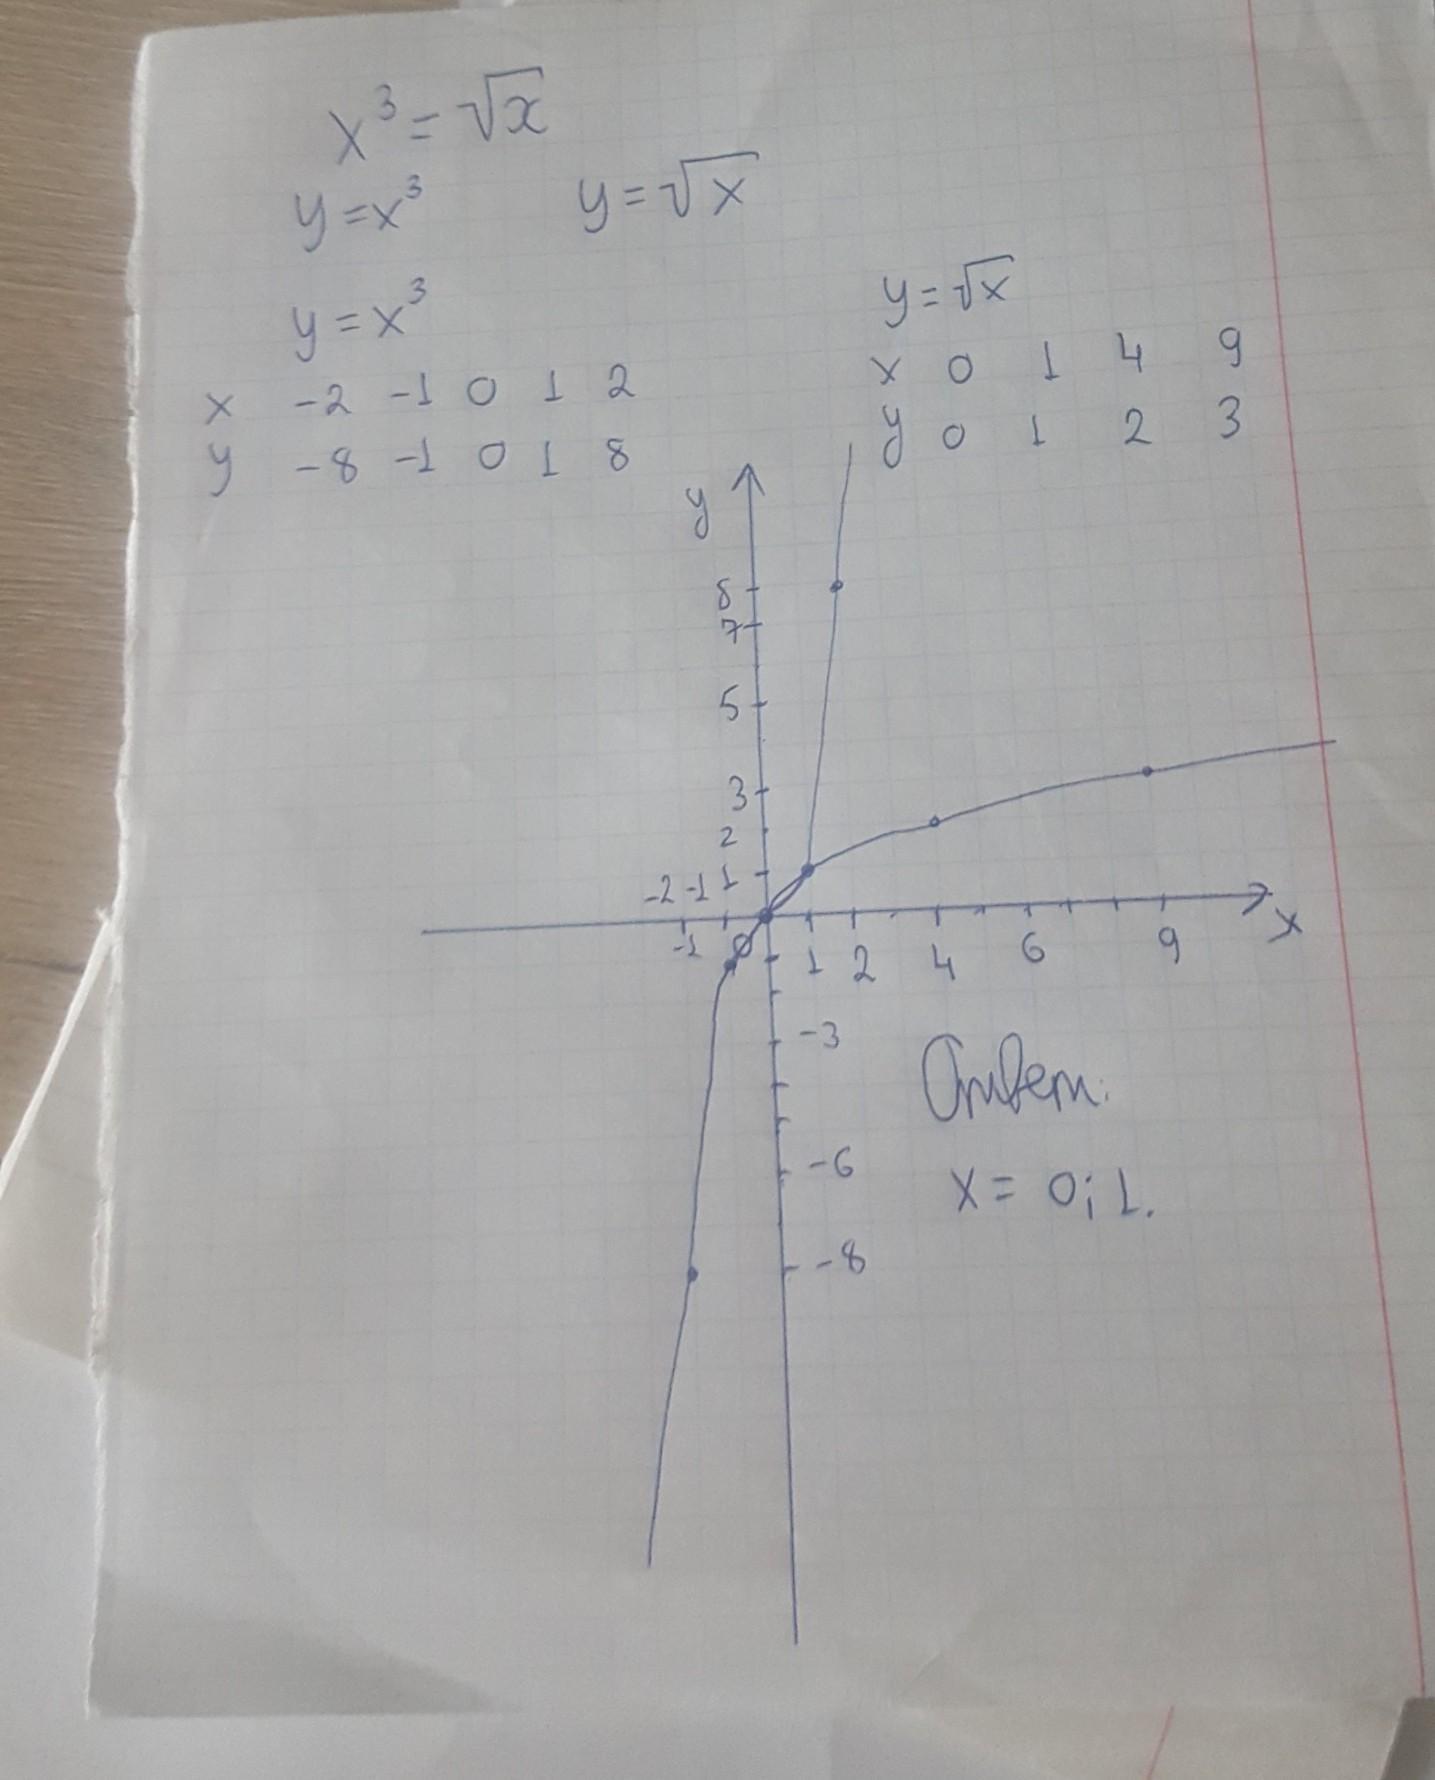 x³ = √x
y = x³ y = √x
y = x³
x -2 -1 0 1 2
y -8 -1 0 1 8
y = √x
x 0 1 4 9
y 0 1 2 3
y
8
7
5
3
2
-2 -1 1
-1 0 1 2 4 6 9 x
-3
-6
-8
Ответ:
x = 0; 1.